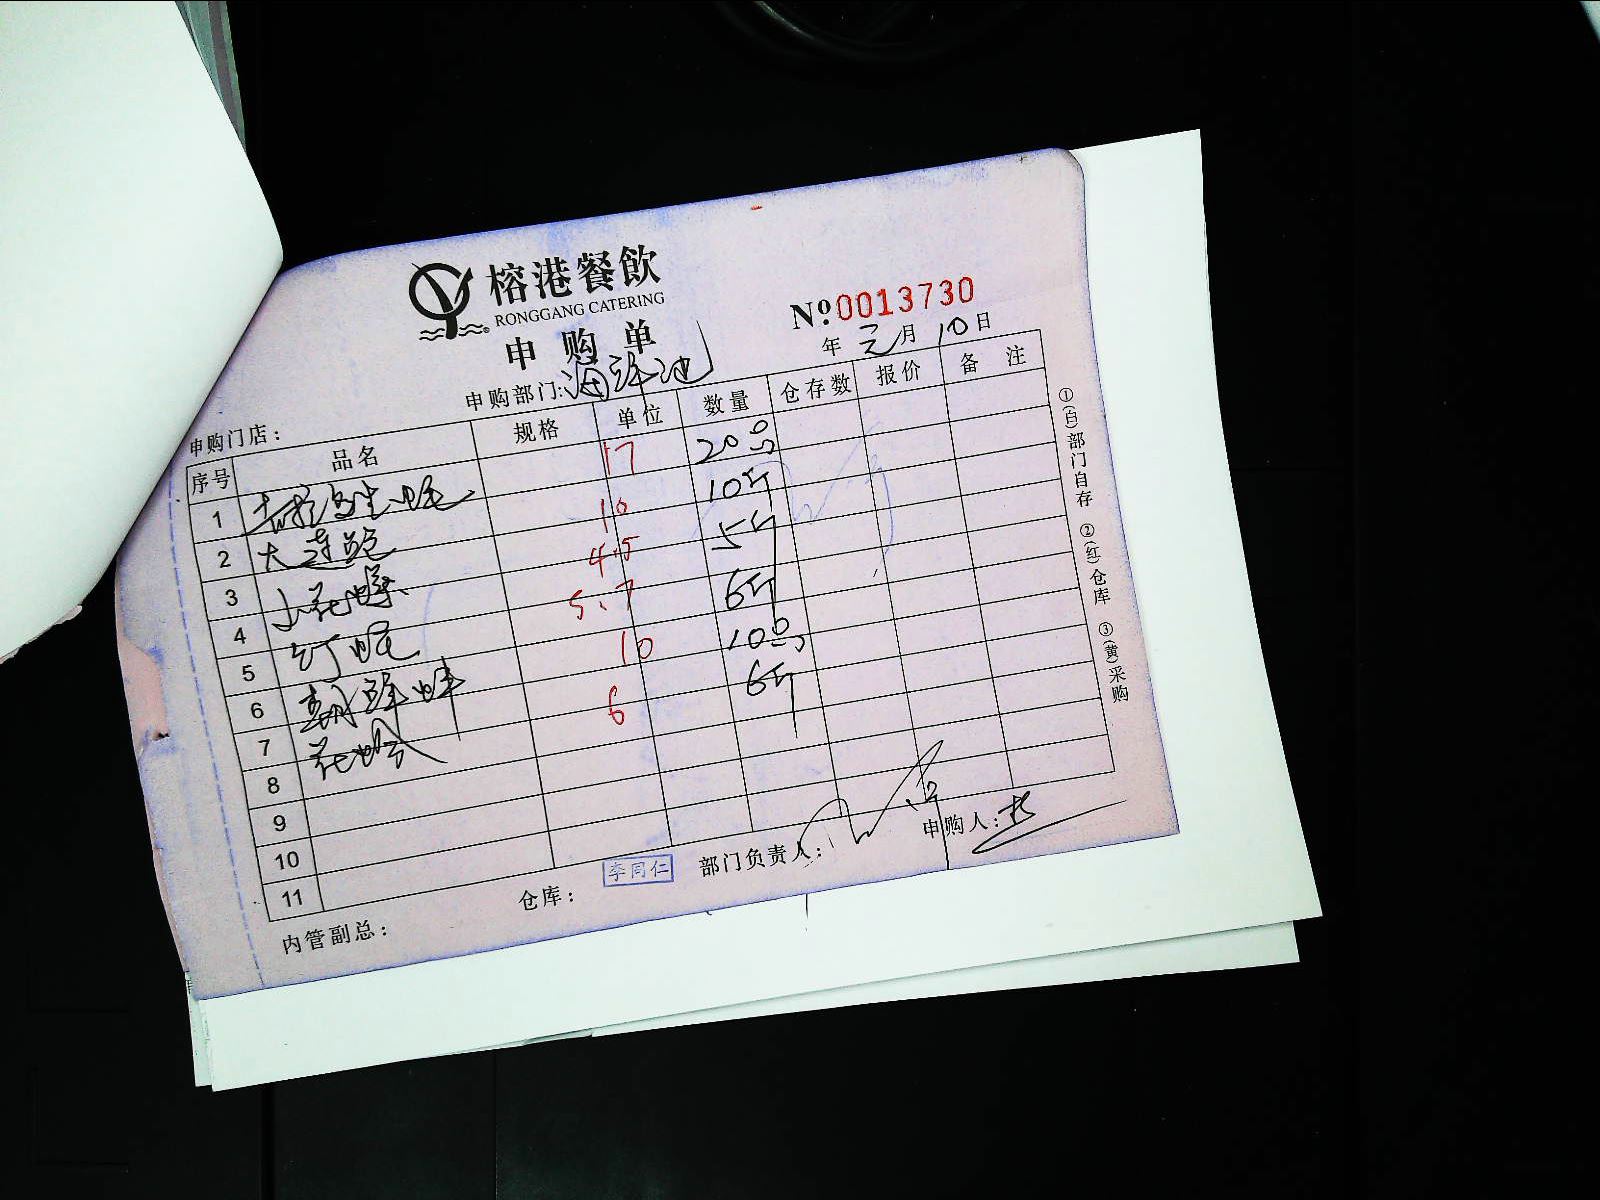 榕港餐飲
RONGGANG CATERING
申购单
№ 0013730
年 元 月 10 日
申购部门: 海鲜池
申购门店:
序号 品名 规格 单位 数量 仓存数 报价 备注
1 吉拉多生蚝 17 20只
2 大连鲍 10 10斤
3 小花螺 4.5 5斤
4 5.7 6斤
5 10 10只
6 蚌 6 6斤
7 花蛤
8
9
10
11
内管副总:
仓库: 李同仁
部门负责人:
申购人:
①(白)部门自存 ②(红)仓库 ③(黄)采购